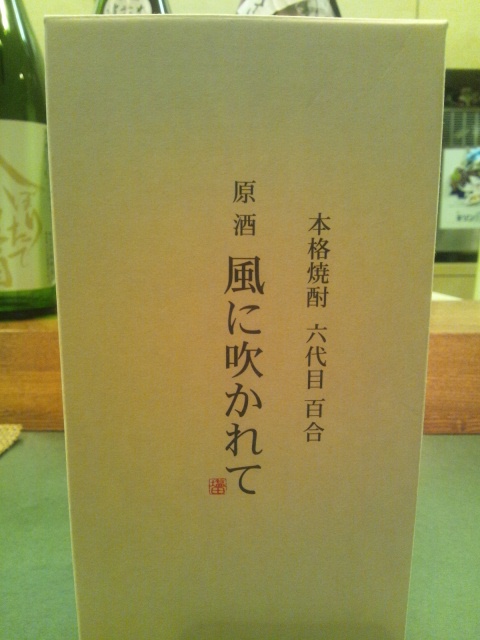 本格焼酎 六代目 百合
原酒 風に吹かれて